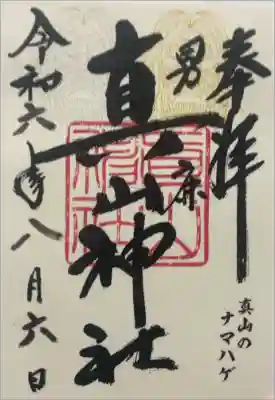 奉拝
男鹿
真山神社
令和六年八月六日
真山の
ナマハゲ